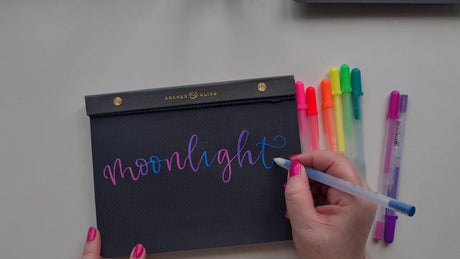 ARCHER & OLIVE
moonlight